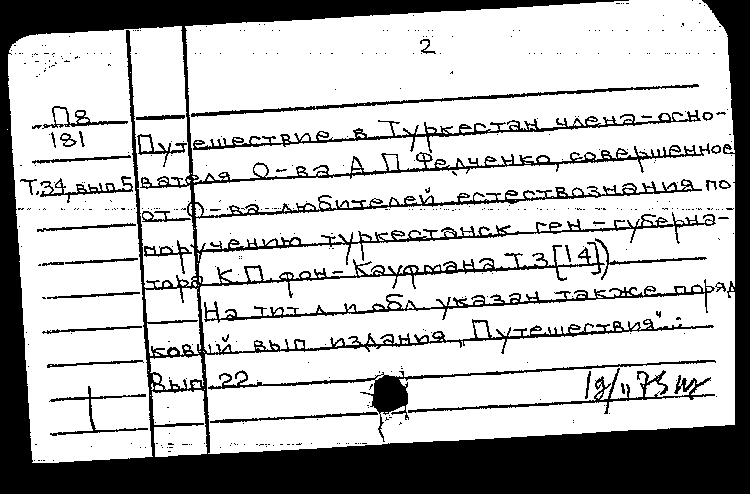 2
П8
181
Т.34, вып.5
Путешествие в Туркестан члена-осно-
вателя О-ва А П Федченко, совершенное
от О-ва любителей естествознания по
поручению туркестанск ген-губерна-
тора К.П.фон-Кауфмана. Т.3[14]).
На тит л и обл указан также поряд
ковый вып издания „Путешествия":
Вып 22.